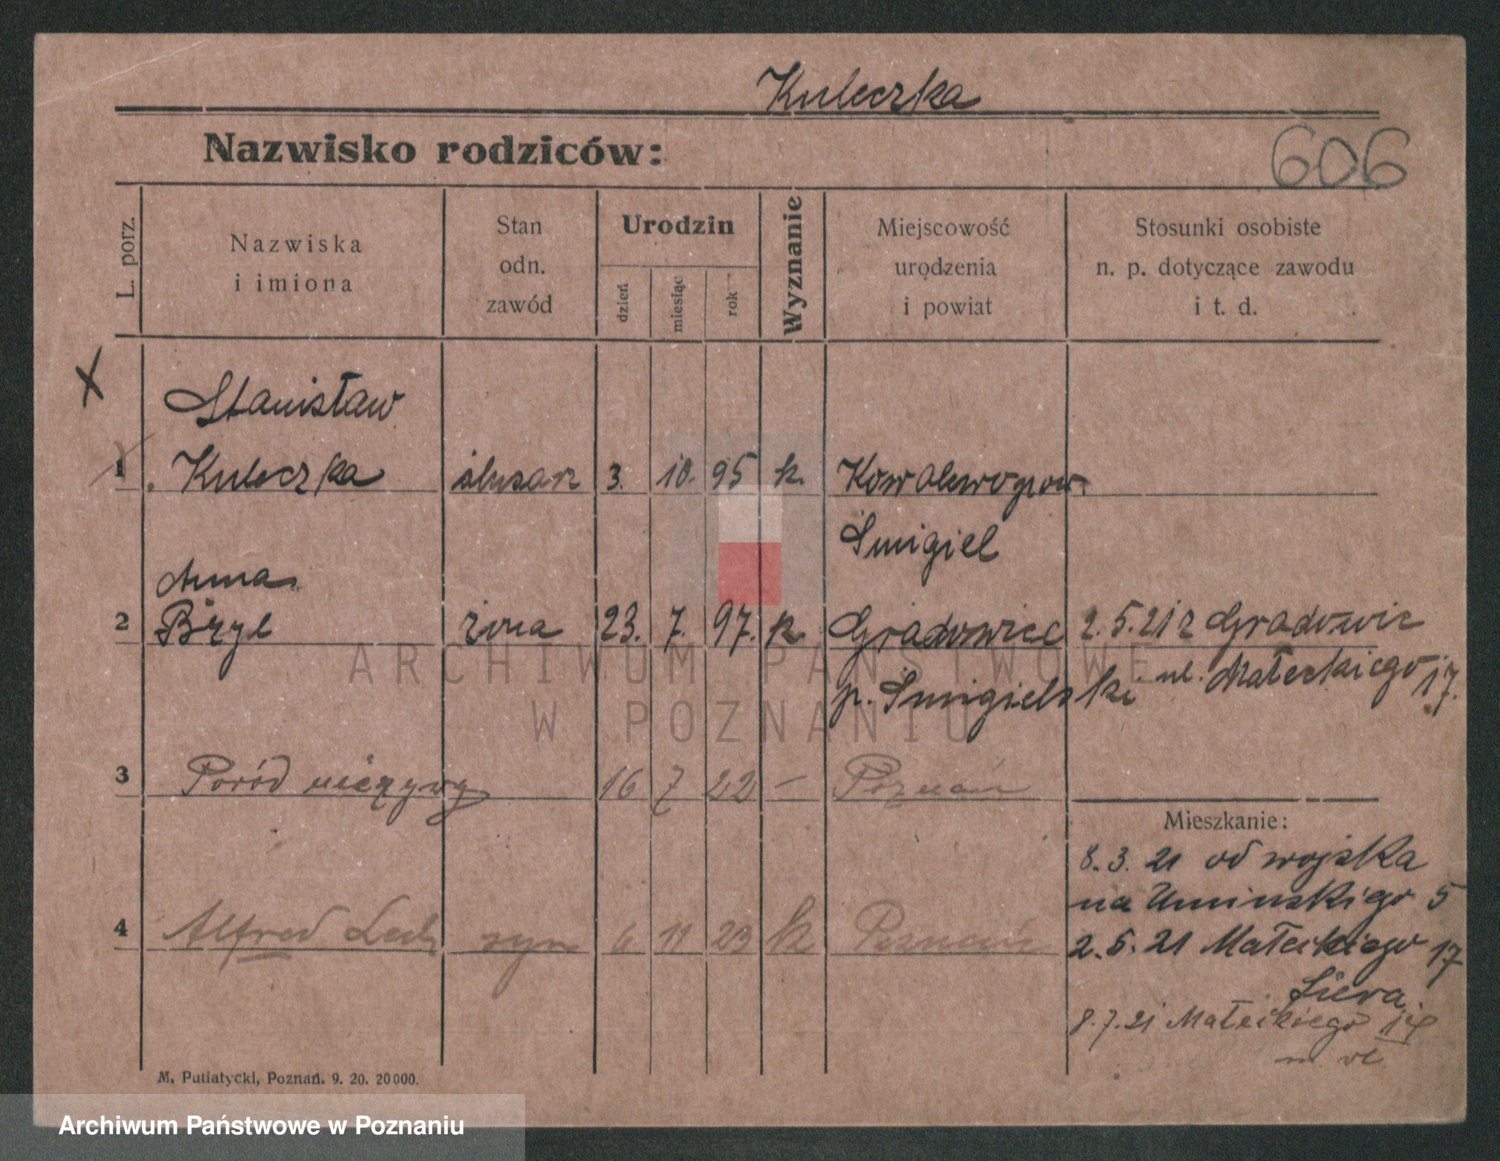 Kuleczka
Nazwisko rodziców:
606
L. porz.
Nazwiska
i imiona
Stan
odn.
zawód
Urodzin
dzień
miesiąc
rok
Wyznanie
Miejscowość
urodzenia
i powiat
Stosunki osobiste
n. p. dotyczące zawodu
i t. d.
X
Stanisław
1 Kuleczka ślusarz 3. 10. 95 k. Kowalewo pow.
Śmigiel
Anna
2 Bżyl żona 23. 7. 97. k. Gradowice 2.5.21 z Gradowic
p. Śmigielski ul. Małeckiego 17.
3 Poród nieżywy 16 7 22 – Poznań
Mieszkanie:
8.3.21 od wojska
na Umińskiego 5
4 Alfred Lech syn 6 11 23 k Poznań
2.5.21 Małeckiego 17
8.7.21 Małeckiego
M. Putiatycki, Poznań. 9. 20. 20000.
ARCHIWUM PAŃSTWOWE
W POZNANIU
Archiwum Państwowe w Poznaniu